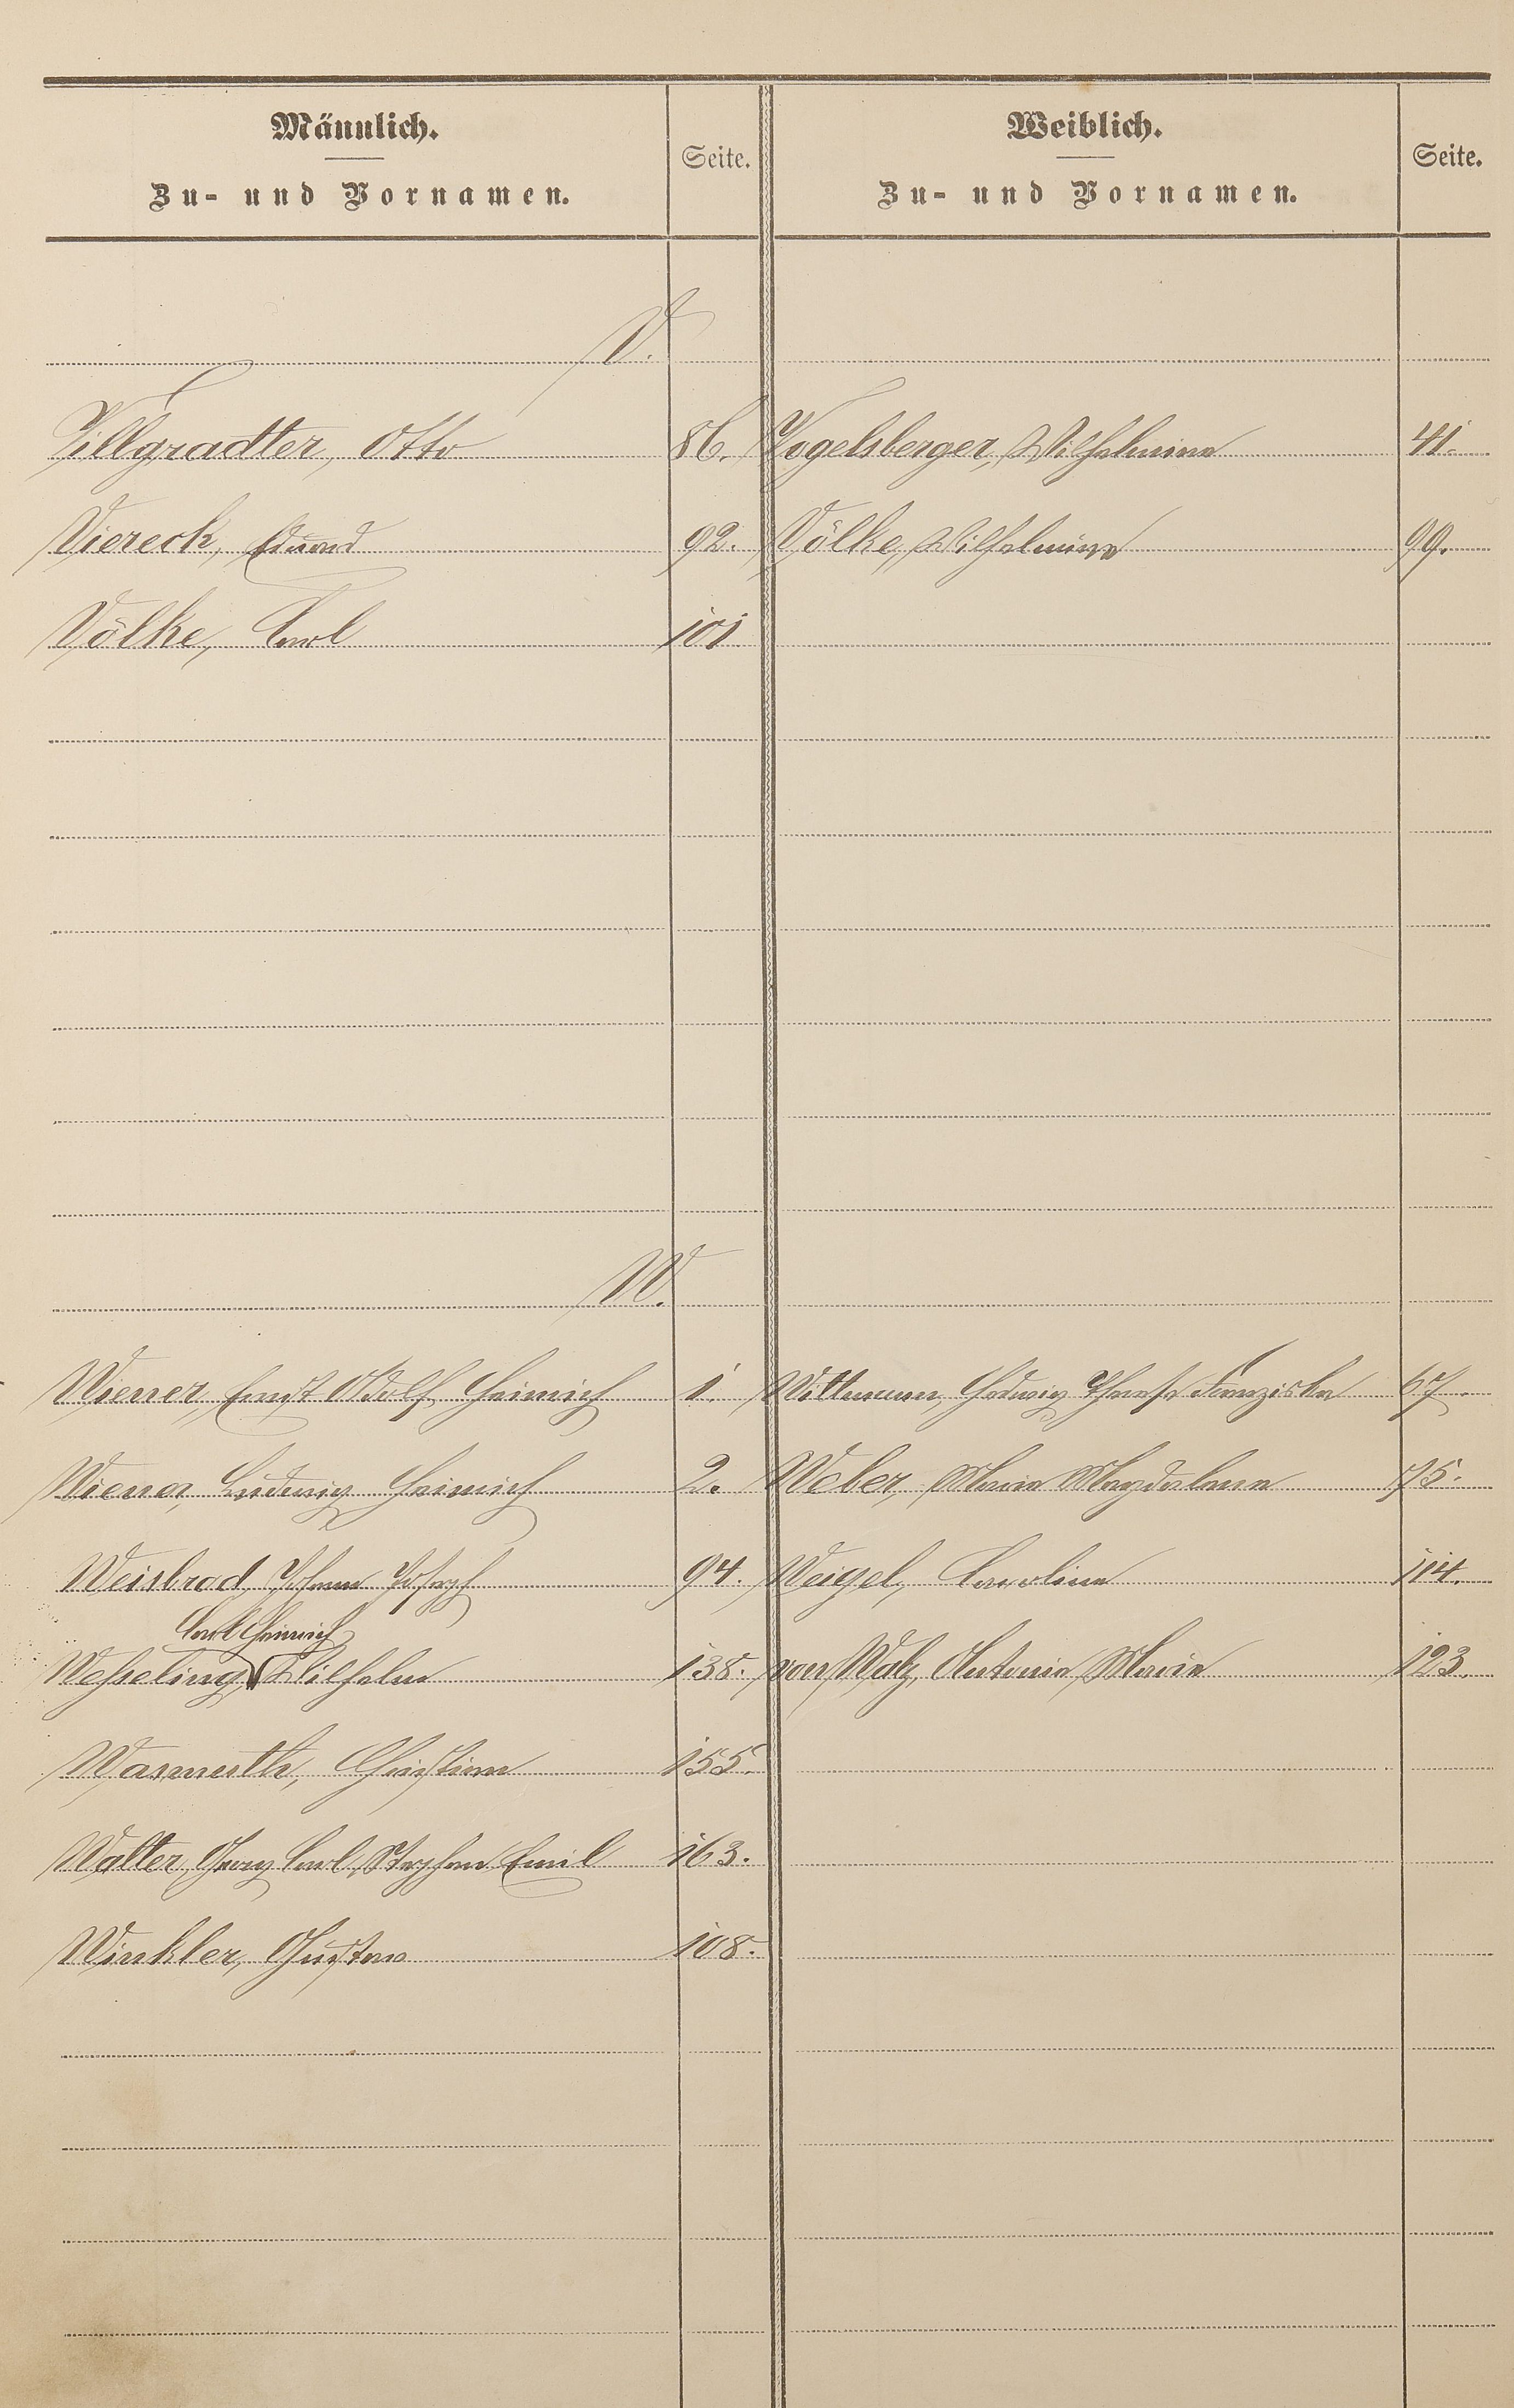 Männlich.
Zu- und Vornamen.
Seite.
Weiblich.
Zu- und Vornamen.
Seite.
V.
Villgradter, Otto 86. Vogelsberger, Wilhelmine 41.
Viereck, Eduard 92. Völke, Wilhelmine 99.
Völke, Carl 101
W.
Wiener, Ernst Adolf Heinrich 1. Wittmann, Hedwig Therese Franziska 67.
Wiener, Ludwig Heinrich 2. Weber, Maria Magdalena 75.
Weisbrod, Johann Joseph 94. Weigel, Caroline 114.
Carl Heinrich
Wesseling, Wilhelm 138. von Walz, Antonie Marie 123.
Wasmuth, Christian 155.
Walter, Georg Carl Stephan Emil 163.
Winkler, Gustav 108.